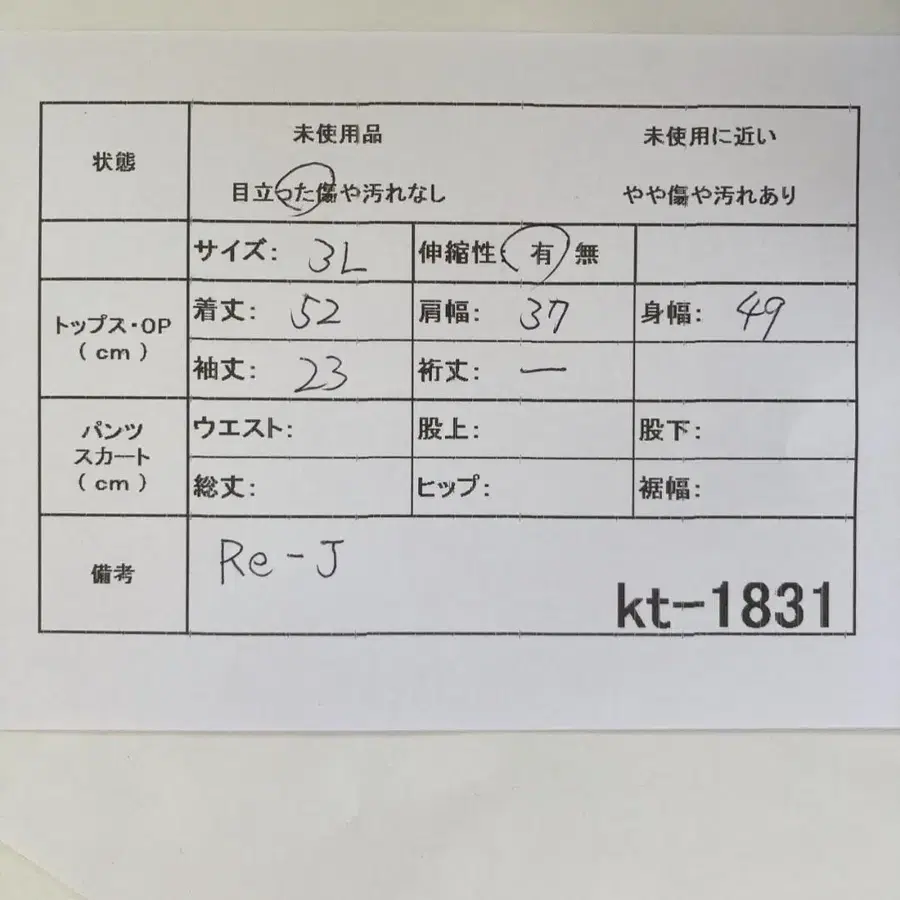 状態
未使用品 未使用に近い
目立った傷や汚れなし やや傷や汚れあり
サイズ: 3L 伸縮性: 有 無
トップス・OP
(cm)
着丈: 52 肩幅: 37 身幅: 49
袖丈: 23 裄丈: ー
パンツ
スカート
(cm)
ウエスト: 股上: 股下:
総丈: ヒップ: 裾幅:
備考
Re-J
kt-1831